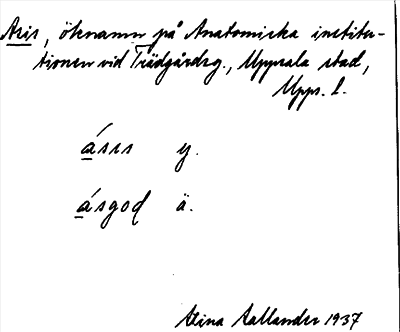 Asis, öknamn på Anatomiska institu-
tionen vid Trädgårdsg., Uppsala stad,
Upps. l.
ásɪs y.
ásgoɖ ä.
Stina Hallander 1937